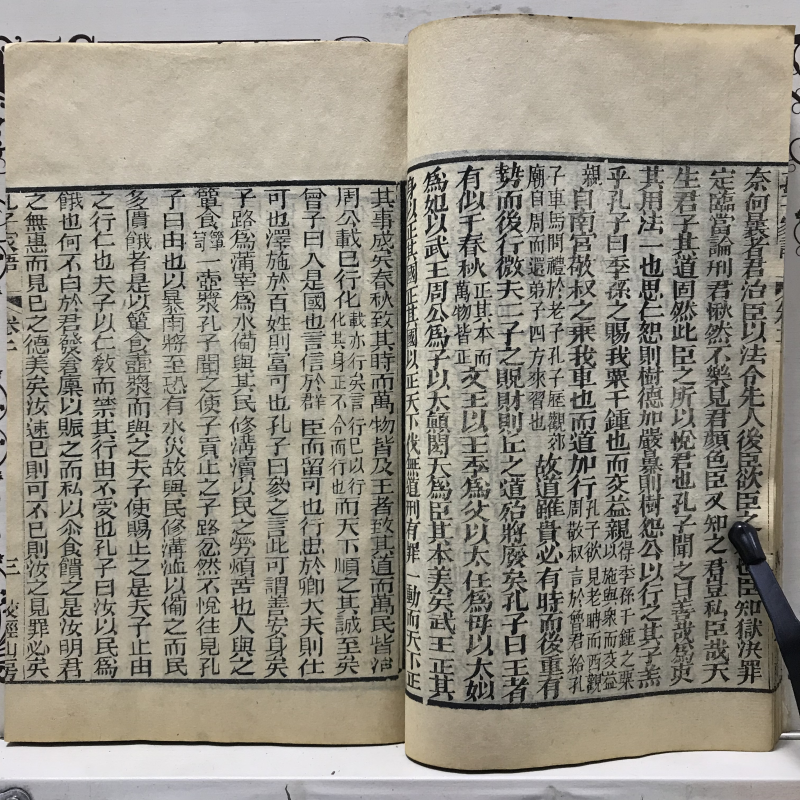 奈何曩者君治臣以法令先人後臣欲臣之 臣知獄決罪
定臨當論刑君愀然不樂見君顏色臣又知之君豈私臣哉天
生君子其道固然此臣之所以悅君也孔子聞之曰善哉爲吏
其用法一也思仁恕則樹德加嚴暴則樹怨公以行之其子羔
乎孔子曰季孫之賜我粟千鍾也而交益親得季孫千鍾之粟
施與眾而交益
親自南宮敬叔之乘我車也而道加行孔子欲見老聃而西觀
周敬叔言於魯君給孔
子車馬問禮於老子孔子歷觀郊
廟自周而還弟子四方來習也故道雖貴必有時而後重有
勢而後行微夫二子之貺財則丘之道殆將廢矣孔子曰王者
有似乎春秋正其本而
萬物皆正文王以王季爲父以太任爲母以太姒
爲妃以武王周公爲子以太顛閎夭爲臣其本美矣武王正其
身以正其國正其國以正天下伐無道刑有罪一動而天下正
其事成矣春秋致其時而萬物皆及王者致其道而萬民皆治
周公載己行化載亦行矣言行己以行
化其身正不令而行也而天下順之其誠至矣
曾子曰入是國也言信於群臣而留可也行忠於卿大夫則仕
可也澤施於百姓則富可也孔子曰參之言此可謂善安身矣
子路爲蒲宰爲水備與其民修溝瀆以民之勞煩苦也人與之
簞食一壺漿孔子聞之使子貢止之子路忿然不悅往見孔
子曰由也以暴雨將至恐有水災故與民修溝洫以備之而民
多匱餓者是以簞食壺漿而與之夫子使賜止之是夫子止由
之行仁也夫子以仁教而禁其行由不受也孔子曰汝以民爲
餓也何不白於君發倉廩以賑之而私以尒食饋之是汝明君
之無惠而見己之德美矣汝速已則可不已則汝之見罪必矣
孔子家語 卷二 三 校經山房